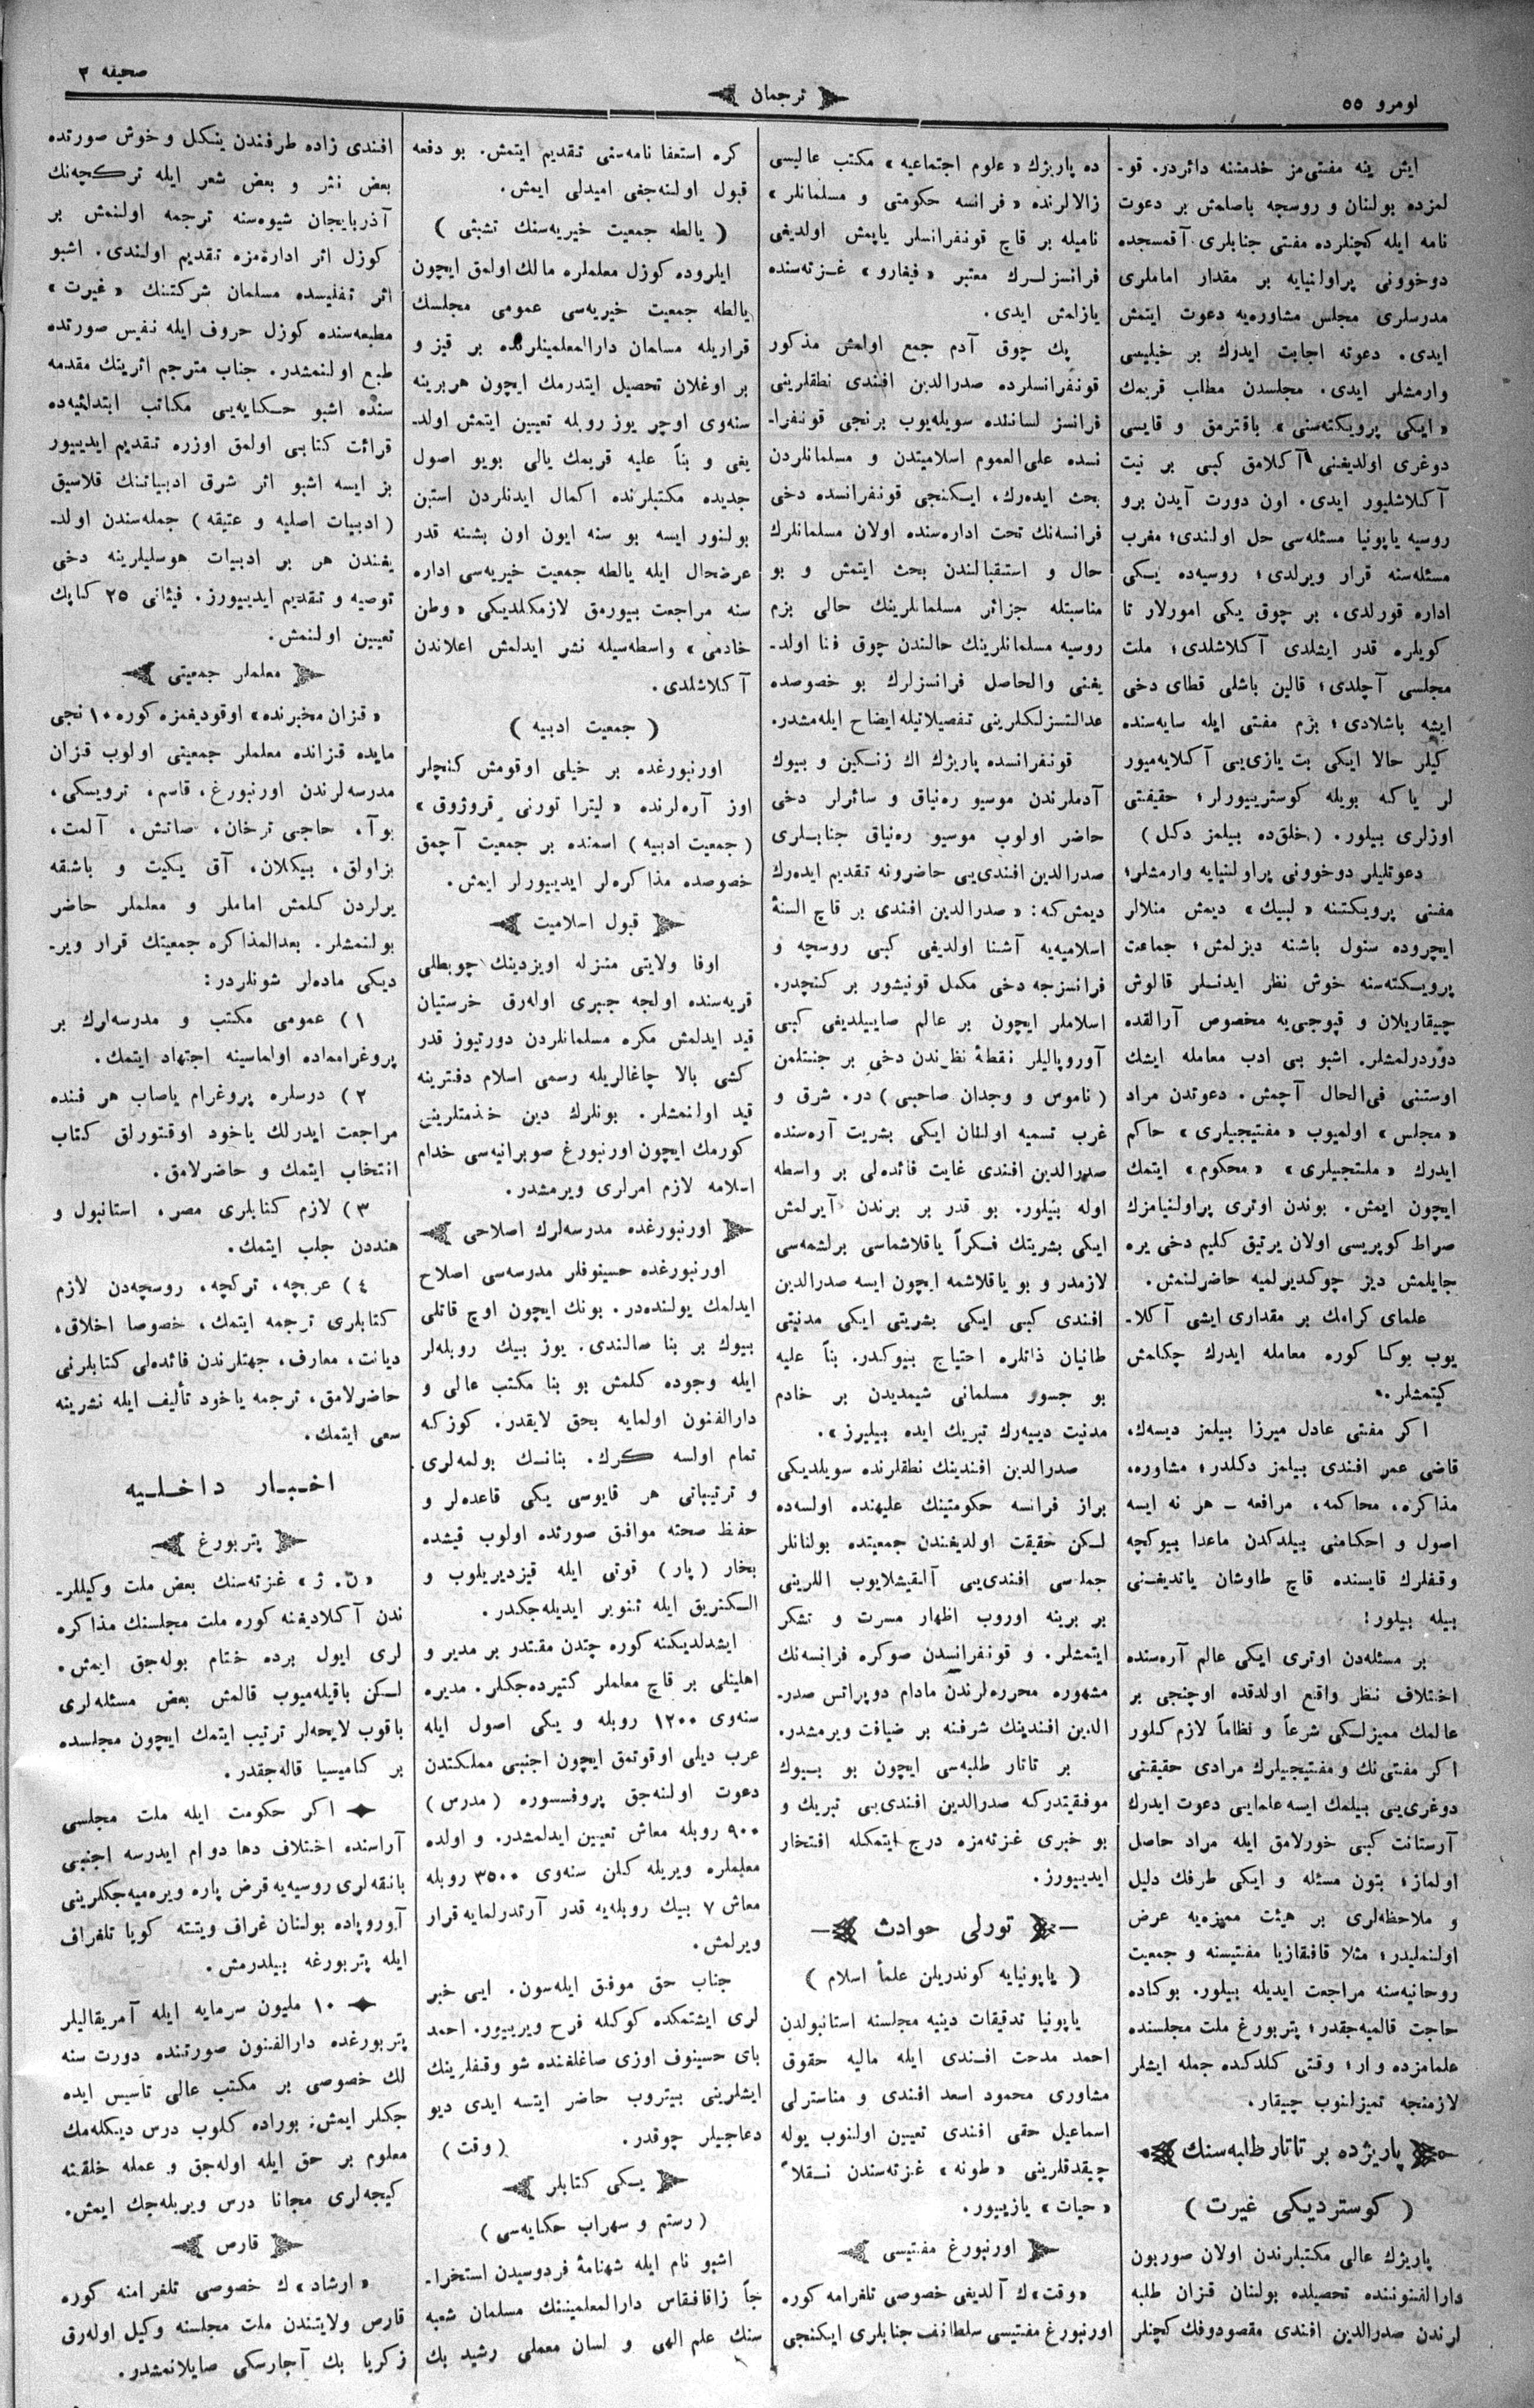 اومرو ۵۵
ترجمان
صحیفه ۳
ایش ینه مفتی‌مز خدمتنه دائردر. قو-
لمزده بولنان و روسجه باصلمش بر دعوت
نامه ایله کچنلرده مفتی جنابلری آقمسجده
دوخوونی پراولنیایه بر مقدار اماملری
مدرسلری مجلس مشاوره‌یه دعوت ایتمش
ایدی. دعوته اجابت ایدرك بر خیلیسی
وارمشلر ایدی. مجلسدن مطلب قریمك
«ایکی پرویکته‌سنی» باقترمق و قایسی
دوغری اولدیغنی آکلامق کبی بر نیت
آکلاشلیور ایدی. اون دورت آیدن برو
روسیه یاپونیا مسئله‌سی حل اولندی؛ مغرب
مسئله‌سنه قرار ویرلدی؛ روسیه‌ده یکی
اداره قورلدی، بر چوق یکی امورلار تا
کویلره قدر ایشلدی آکلاشلدی؛ ملت
مجلسی آچلدی؛ قالین باشلی قطای دخی
ایشه باشلادی؛ بزم مفتی ایله سایه‌سنده
کیلر حالا ایکی بت یازی‌یی آکلایه‌میور
لر یاکه بویله کوستریبورلر؛ حقیقتی
اوزلری بیلور. (خلق‌ده بیلمز دکل)
دعوتلیلر دوخوونی پراولنیایه وارمشلر؛
مفتی پرویکتنه «لبیك» دیمش منلالر
ایچروده ستول باشنه دیزلمش؛ جماعت
پرویکته‌سنه خوش نظر ایدنلر قالوش
چیقاریلان و قپوجی‌یه مخصوص آرالقده
دوردرلمشلر. اشبو بی ادب معامله ایشك
اوستنی فی‌الحال آچمش. دعوتدن مراد
«مجلس» اولمیوب «مفتیجیلری» حاکم
ایدرك «ملتجیلری» «محکوم» ایتمك
ایچون ایمش. بوندن اوتری پراولنیامزك
صراط کوپریسی اولان یرتیق کلیم دخی یره
جایلمش دیز چوکدیرلمیه حاضرلنمش.
علمای کرامك بر مقداری ایشی آکلا-
یوب بوکا کوره معامله ایدرك چکلمش
کیتمشلر.
اکر مفتی عادل میرزا بیلمز دیسه‌ك،
قاضی عمر افندی بیلمز دکلدر؛ مشاوره،
مذاکره، محاکمه، مرافعه ــ هر نه ایسه
اصول و احکامنی بیلدکدن ماعدا بیوکچه
وقفلرك قایسنده قاچ طاوشان یاتدیغنی
بیله بیلور!
بر مسئله‌دن اوتری ایکی عالم آره‌سنده
اختلاف نظر واقع اولدقده اوچنجی بر
عالمك ممیزلکی شرعاً و نظاماً لازم کلور
اکر مفتی‌نك و مفتیجیلرك مرادی حقیقتی
دوغری‌یی بیلمك ایسه علمایی دعوت ایدرك
آرستانت کبی خورلامق ایله مراد حاصل
اولماز؛ بتون مسئله و ایکی طرفك دلیل
و ملاحظه‌لری بر هیئت ممیزه‌یه عرض
اولنملیدر؛ مثلا قافقازیا مفتیسنه و جمعیت
روحانیه‌سنه مراجعت ایدیله بیلور. بوکاده
حاجت قالمیه‌جقدر؛ پتربورغ ملت مجلسنده
علمامزده وار؛ وقتی کلدکده جمله ایشلر
لازمنجه تمیزلنوب چیقار.
پاریژده بر تاتار طلبه‌سنك
(کوستردیکی غیرت)
پاریزك عالی مکتبلرندن اولان صوربون
دارالفنوننده تحصیلده بولنان قزان طلبه
لرندن صدرالدین افندی مقصودوفك کچنلر
ده پاریزك «علوم اجتماعیه» مکتب عالیسی
زالالرنده «فرانسه حکومتی و مسلمانلر»
نامیله بر قاچ قونفرانسلر یاپمش اولدیغی
فرانسزلرك معتبر «فیغارو» غزته‌سنده
یازلمش ایدی.
پك چوق آدم جمع اولمش مذکور
قونفرانسلرده صدرالدین افندی نطقلرینی
فرانسز لساننده سویله‌یوب برنجی قونفرا-
نسده علی‌العموم اسلامیتدن و مسلمانلردن
بحث ایده‌رك، ایکنجی قونفرانسده دخی
فرانسه‌نك تحت اداره‌سنده اولان مسلمانلرك
حال و استقبالندن بحث ایتمش و بو
مناسبتله جزائر مسلمانلرینك حالی بزم
روسیه مسلمانلرینك حالندن چوق فنا اولد-
یغنی والحاصل فرانسزلرك بو خصوصده
عدالتسزلکلرینی تفصیلاتیله ایضاح ایله‌مشدر.
قونفرانسده پاریزك اك زنکین و بیوك
آدملرندن موسیو ره‌نیاق و سائرلر دخی
حاضر اولوب موسیو ره‌نیاق جنابلری
صدرالدین افندی‌یی حاضرونه تقدیم ایده‌رك
دیمش‌که: «صدرالدین افندی بر قاچ السنهٔ
اسلامیه‌یه آشنا اولدیغی کبی روسچه و
فرانسزجه دخی مکمل قونیشور بر کنجدر.
اسلاملر ایچون بر عالم صاییلدیغی کبی
آوروپالیلر نقطهٔ نظرندن دخی بر جنتلمن
(ناموس و وجدان صاحبی) در. شرق و
غرب تسمیه اولنان ایکی بشریت آره‌سنده
صدرالدین افندی غایت فائده‌لی بر واسطه
اوله بیلور. بو قدر بر برندن آیرلمش
ایکی بشریتك فکراً یاقلاشماسی برلشمه‌سی
لازمدر و بو یاقلاشمه ایچون ایسه صدرالدین
افندی کبی ایکی بشریتی ایکی مدنیتی
طانیان ذاتلره احتیاج بیوکدر. بناً علیه
بو جسور مسلمانی شیمدیدن بر خادم
مدنیت دیه‌رك تبریك ایده بیلیرز».
صدرالدین افندینك نطقلرنده سویلدیکی
براز فرانسه حکومتینك علیهنده اولسه‌ده
لکن حقیقت اولدیغندن جمعیتده بولنانلر
جمله‌سی افندی‌یی آلقیشلایوب اللرینی
بر برینه اوروب اظهار مسرت و تشکر
ایتمشلر. و قونفرانسدن صوکره فرانسه‌نك
مشهوره محرره‌لرندن مادام دوپراتس صدر-
الدین افندینك شرفنه بر ضیافت ویرمشدر.
بر تاتار طلبه‌سی ایچون بو بیوك
موفقیتدرکه صدرالدین افندی‌یی تبریك و
بو خبری غزته‌مزه درج ایتمکله افتخار
ایدییورز.
تورلی حوادث
(یاپونیایه کوندریلن علمأ اسلام)
یاپونیا تدقیقات دینیه مجلسنه استانبولدن
احمد مدحت افندی ایله مالیه حقوق
مشاوری محمود اسعد افندی و مناسترلی
اسماعیل حقی افندی تعیین اولنوب یوله
چیقدقلرینی «طونه» غزته‌سندن نقلاً
«حیات» یازییور.
اورنبورغ مفتیسی
«وقت»ك آلدیغی خصوصی تلغرامه کوره
اورنبورغ مفتیسی سلطانف جنابلری ایکنجی
کره استعفا نامه‌سنی تقدیم ایتمش. بو دفعه
قبول اولنه‌جغی امیدلی ایمش.
(یالطه جمعیت خیریه‌سنك تشبثی)
ایلروده کوزل معلملره مالك اولمق ایچون
یالطه جمعیت خیریه‌سی عمومی مجلسك
قراریله مسلمان دارالمعلمینلرنده بر قیز و
بر اوغلان تحصیل ایتدرمك ایچون هربرینه
سنه‌وی اوچر یوز روبله تعیین ایتمش اولد-
یغی و بناً علیه قریمك یالی بویو اصول
جدیده مکتبلرنده اکمال ایدنلردن استین
بولنور ایسه بو سنه ایون اون بشنه قدر
عرضحال ایله یالطه جمعیت خیریه‌سی اداره
سنه مراجعت بیورمق لازمکلدیکی «وطن
خادمی» واسطه‌سیله نشر ایدلمش اعلاندن
آکلاشلدی.
(جمعیت ادبیه)
اورنبورغده بر خیلی اوقومش کنچلر
اوز آره‌لرنده «لیترا تورنی قروژوق»
(جمعیت ادبیه) اسمنده بر جمعیت آچمق
خصوصده مذاکره‌لر ایدییورلر ایمش.
قبول اسلامیت
اوفا ولایتی منزله اویزدینك چوبطلی
قریه‌سنده اولجه جبری اوله‌رق خرستیان
قید ایدلمش مکره مسلمانلردن دورتیوز قدر
کشی بالا چاغالریله رسمی اسلام دفترینه
قید اولنمشلر. بونلرك دین خذمتلرینی
کورمك ایچون اورنبورغ صوبرانیه‌سی خدام
اسلامه لازم امرلری ویرمشدر.
اورنبورغده مدرسه‌لرك اصلاحی
اورنبورغده حسینوفلر مدرسه‌سی اصلاح
ایدلمك یولنده‌در. بونك ایچون اوچ قاتلی
بیوك بر بنا صالندی. یوز بیك روبله‌لر
ایله وجوده کلمش بو بنا مکتب عالی و
دارالفنون اولمایه بحق لایقدر. کوزکه
تمام اولسه کرك. بنانك بولمه‌لری
و ترتیباتی هر قایوسی یکی قاعده‌لر و
حفظ صحته موافق صورتده اولوب قیشده
بخار (پار) قوتی ایله قیزدیریلوب و
الکتریق ایله تنویر ایدیله‌جکدر.
ایشدلدیکنه کوره چتدن مقتدر بر مدیر و
اهلیتلی بر قاچ معلملر کتیرده‌جکلر. مدیره
سنه‌وی ۱۲۰۰ روبله و یکی اصول ایله
عرب دیلی اوقوتمق ایچون اجنبی مملکتدن
دعوت اولنه‌جق پروفسسوره (مدرس)
۹۰۰ روبله معاش تعیین ایدلمشدر. و اولده
معلملره ویریله کلن سنه‌وی ۳۵۰۰ روبله
معاش ۷ بیك روبله‌یه قدر آرتدرلمایه قرار
ویرلمش.
جناب حق موفق ایله‌سون. ایی خبر
لری ایشتمکده کوکله فرح ویرییور. احمد
بای حسینوف اوزی صاغلغنده شو وقفلرینك
ایشلرینی بیتروب حاضر ایتسه ایدی دیو
دعاجیلر چوقدر. (وقت)
یکی کتابلر
(رستم و سهراب حکایه‌سی)
اشبو نام ایله شهنامهٔ فردوسیدن استخرا-
جاً زاقافقاس دارالمعلمیننك مسلمان شعبه
سنك علم الهی و لسان معلمی رشید بك
افندی زاده طرفندن ینکل و خوش صورتده
بعض نثر و بعض شعر ایله ترکچه‌نك
آذربایجان شیوه‌سنه ترجمه اولنمش بر
کوزل اثر اداره‌مزه تقدیم اولندی. اشبو
اثر تفلیسده مسلمان شرکتنك «غیرت»
مطبعه‌سنده کوزل حروف ایله نفیس صورتده
طبع اولنمشدر. جناب مترجم اثرینك مقدمه
سنده اشبو حکایه‌یی مکاتب ابتدائیه‌ده
قرائت کتابی اولمق اوزره تقدیم ایدییور
بز ایسه اشبو اثر شرق ادبیاتنك قلاسیق
(ادبیات اصلیه و عتیقه) جمله‌سندن اولد-
یغندن هر بر ادبیات هوسلیلرینه دخی
توصیه و تقدیم ایدییورز. فیئاتی ۲۵ کاپك
تعیین اولنمش.
معلملر جمعیتی
«قزان مخبرنده» اوقودیغمزه کوره ۱۰نجی
مایده قزانده معلملر جمعیتی اولوب قزان
مدرسه‌لرندن اورنبورغ، قاسم، ترویسکی،
بوآ، حاجی ترخان، صاتش، آلمت،
بزاولق، بیکلان، آق یکیت و باشقه
یرلردن کلمش اماملر و معلملر حاضر
بولنمشلر. بعدالمذاکره جمعیتك قرار ویر-
دیکی ماده‌لر شونلردر:
۱) عمومی مکتب و مدرسه‌لرك بر
پروغرامماده اولماسینه اجتهاد ایتمك.
۲) درسلره پروغرام یاصاب هر فنده
مراجعت ایدرلك یاخود اوقتورلق کتاب
انتخاب ایتمك و حاضرلامق.
۳) لازم کتابلری مصر، استانبول و
هنددن جلب ایتمك.
٤) عربچه، ترکچه، روسچه‌دن لازم
کتابلری ترجمه ایتمك، خصوصا اخلاق،
دیانت، معارف، جهتلرندن فائده‌لی کتابلرنی
حاضرلامق، ترجمه یاخود تألیف ایله نشرینه
سعی ایتمك.
اخبار داخلیه
پتربورغ
«ن. ژ» غزته‌سنك بعض ملت وکیللر-
ندن آکلادیغنه کوره ملت مجلسنك مذاکره
لری ایول برده ختام بوله‌جق ایمش.
لکن باقیله‌میوب قالمش بعض مسئله‌لری
باقوب لایحه‌لر ترتیب ایتمك ایچون مجلسده
بر کامیسیا قاله‌جقدر.
اکر حکومت ایله ملت مجلسی
آراسنده اختلاف دها دوام ایدرسه اجنبی
بانقه‌لری روسیه‌یه قرض پاره ویره‌میه‌جکلرینی
آوروپاده بولنان غراف ویتته کویا تلغراف
ایله پتربورغه بیلدرمش.
۱۰ ملیون سرمایه ایله آمریقالیلر
پتربورغده دارالفنون صورتنده دورت سنه
لك خصوصی بر مکتب عالی تأسیس ایده
جکلر ایمش؛ بوراده کلوب درس دیکله‌مك
معلوم بر حق ایله اوله‌جق و عمله خلقنه
کیجه‌لری مجانا درس ویریله‌جك ایمش.
قارص
«ارشاد»ك خصوصی تلغرامنه کوره
قارص ولایتندن ملت مجلسنه وکیل اوله‌رق
زکریا بك آجارسکی صایلانمشدر.